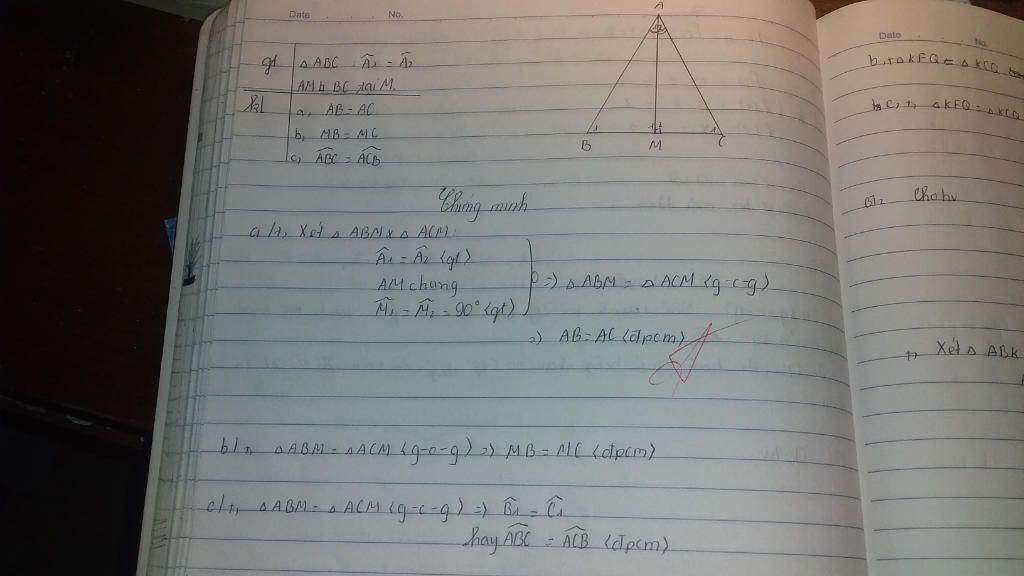 Date No.
gt ΔABC : Â1 = Â2
AM ⊥ BC tại M.
kl a, AB = AC
b, MB = MC
c, ABC = ACB
A
B M C
Chứng minh
a/+, Xét ΔABM x ΔACM:
Â1 = Â2 (gt)
AM chung
M̂1 = M̂2 = 90° (gt)
=> ΔABM = ΔACM (g-c-g)
=> AB = AC (đpcm)
b/+, ΔABM = ΔACM (g-c-g) => MB = MC (đpcm)
c/+, ΔABM = ΔACM (g-c-g) => B̂1 = Ĉ1
hay ABC = ACB (đpcm)
Date No.
b, + ΔKFQ = ΔKCQ
c, +, ΔKFQ = ΔKCQ
+, Xét ΔABK